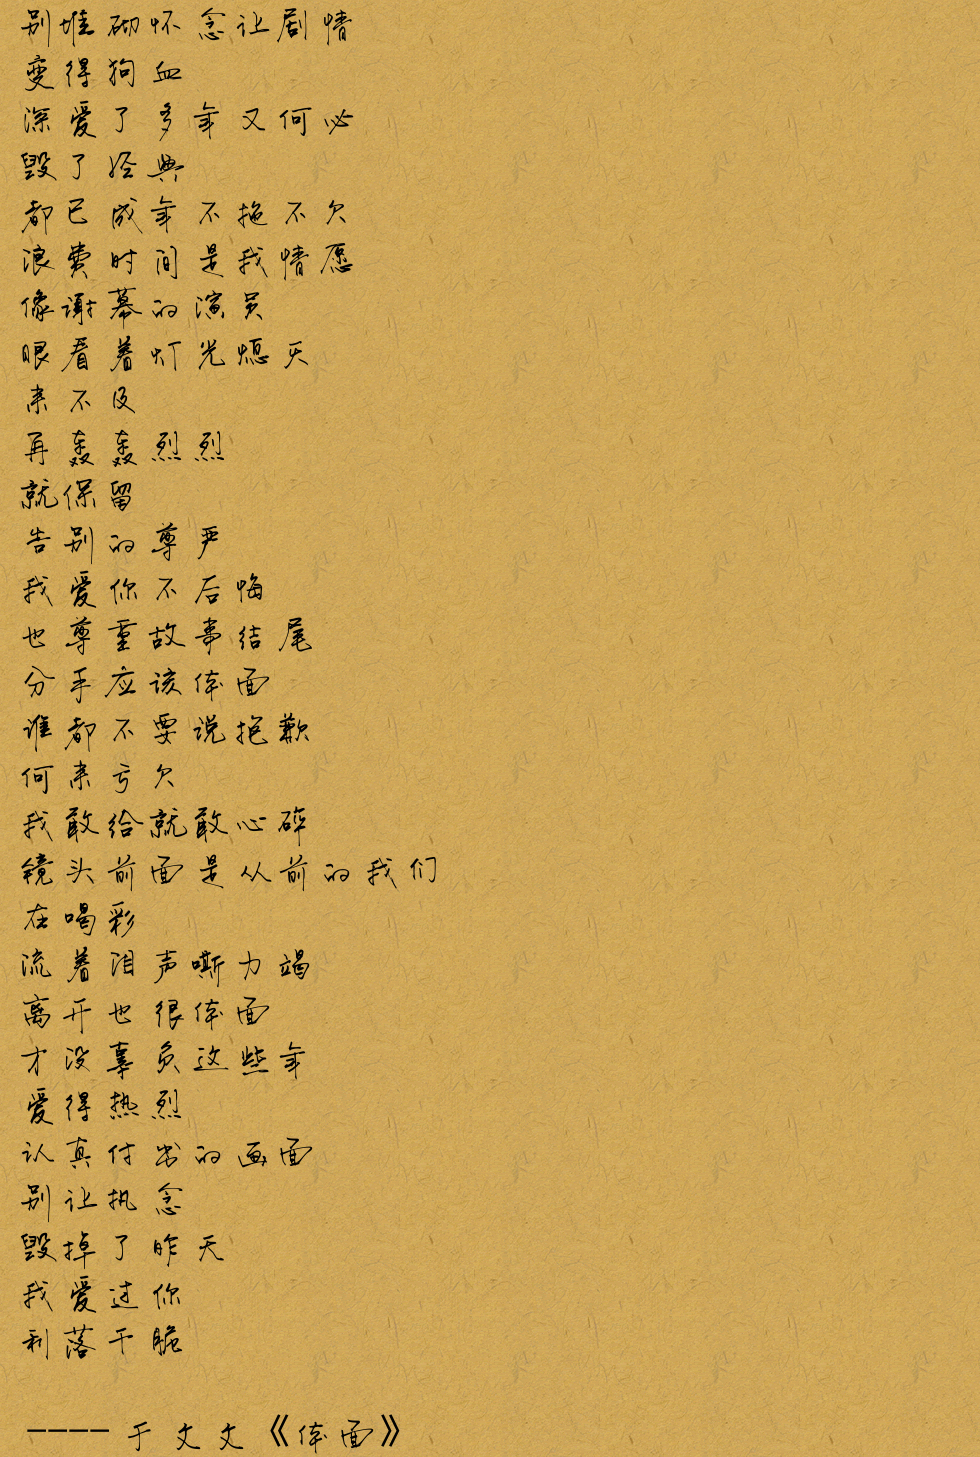 别堆砌怀念让剧情
变得狗血
深爱了多年又何必
毁了经典
都已成年不拖不欠
浪费时间是我情愿
像谢幕的演员
眼看着灯光熄灭
来不及
再轰轰烈烈
就保留
告别的尊严
我爱你不后悔
也尊重故事结尾
分手应该体面
谁都不要说抱歉
何来亏欠
我敢给就敢心碎
镜头前面是从前的我们
在喝彩
流着泪声嘶力竭
离开也很体面
才没辜负这些年
爱得热烈
认真付出的画面
别让执念
毁掉了昨天
我爱过你
利落干脆
———— 于文文《体面》